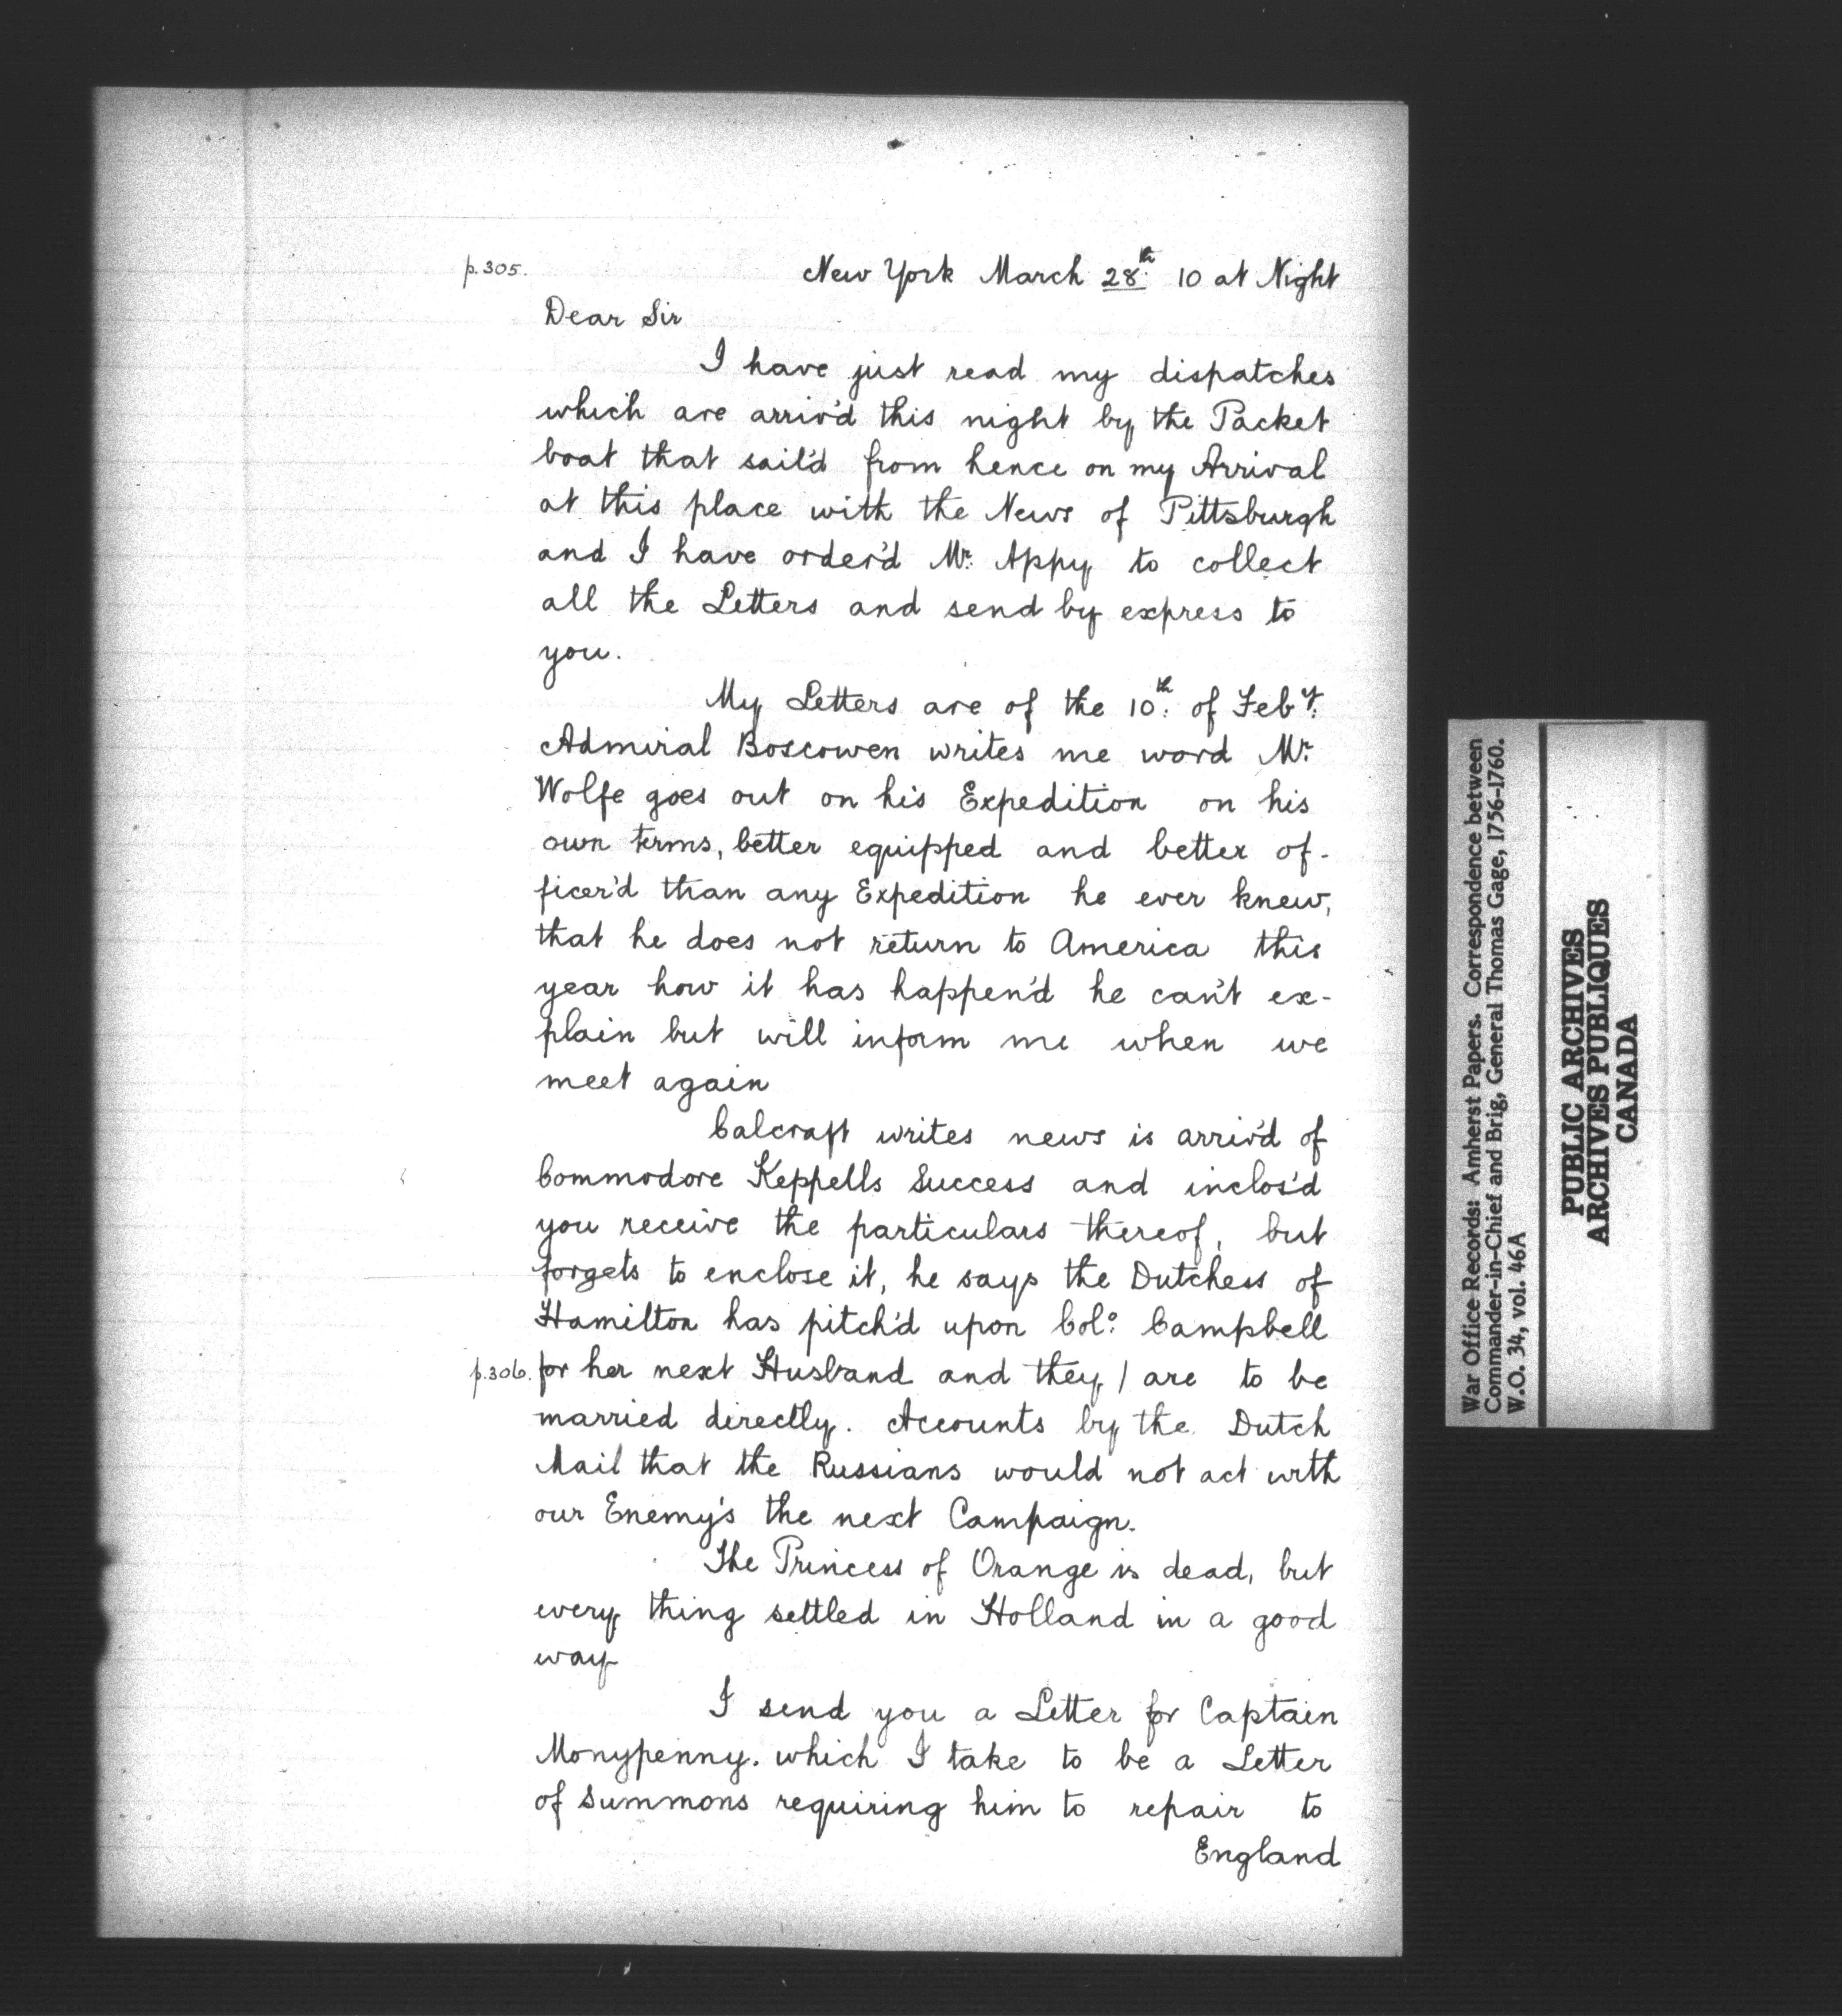 p.305.
New York March 28th 10 at Night
Dear Sir
I have just read my dispatches
which are arriv'd this night by the Packet
boat that sail'd from hence on my Arrival
at this place with the News of Pittsburgh
and I have order'd Mr. Appy to collect
all the Letters and send by express to
you.
My Letters are of the 10th: of Feby:
Admiral Boscowen writes me word Mr.
Wolfe goes out on his Expedition on his
own terms, better equipped and better of-
ficer'd than any Expedition he ever knew,
that he does not return to America this
year how it has happen'd he can't ex-
plain but will inform me when we
meet again
Calcraft writes news is arriv'd of
Commodore Keppells Success and inclos'd
you receive the particulars thereof, but
forgets to enclose it, he says the Dutchess of
Hamilton has pitch'd upon Colo: Campbell
p.306. for her next Husband and they / are to be
married directly. Accounts by the Dutch
Mail that the Russians would not act with
our Enemy's the next Campaign.
The Princess of Orange is dead, but
every thing settled in Holland in a good
way
I send you a Letter for Captain
Monypenny. which I take to be a Letter
of Summons requiring him to repair to
England
War Office Records: Amherst Papers. Correspondence between
Commander-in-Chief and Brig, General Thomas Gage, 1756-1760.
W.O. 34, vol. 46A
PUBLIC ARCHIVES
ARCHIVES PUBLIQUES
CANADA